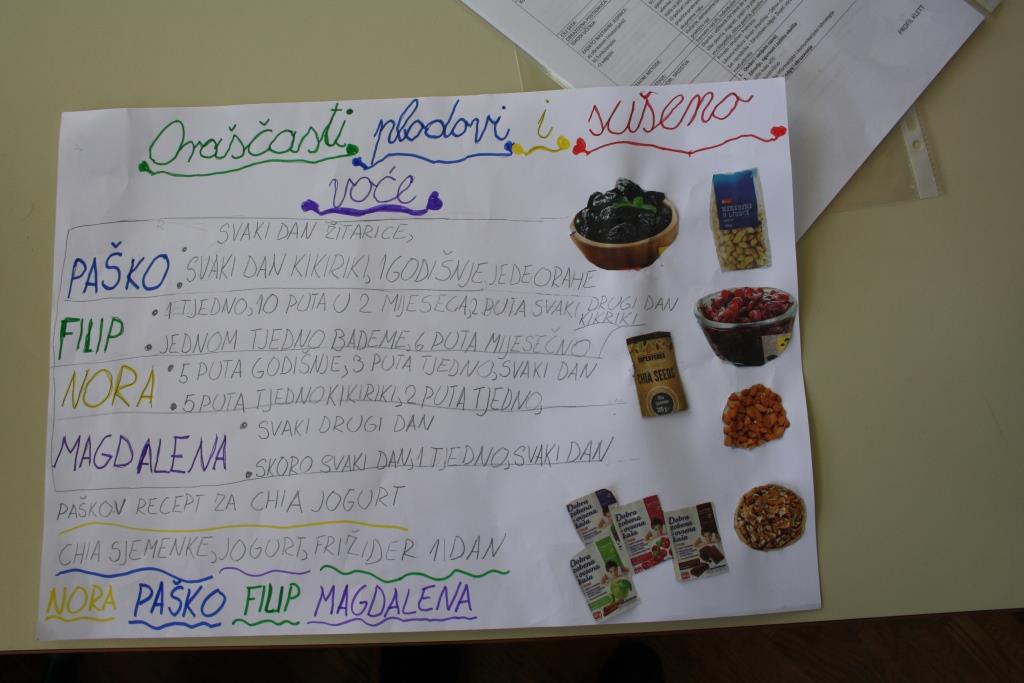 Orašćasti plodovi i sušeno
voće
SVAKI DAN ŽITARICE,
PAŠKO
• SVAKI DAN KIKIRIKI, 1 GODIŠNJE JEDE ORAHE
FILIP
• 1 TJEDNO, 10 PUTA U 2 MIJESECA, 2 PUTA SVAKI DRUGI DAN
KIKRIKI
• JEDNOM TJEDNO BADEME, 6 PUTA MIJESEČNO
NORA
• 5 PUTA GODIŠNJE, 3 PUTA TJEDNO, SVAKI DAN
• 5 PUTA TJEDNO KIKIRIKI, 2 PUTA TJEDNO,
MAGDALENA
• SVAKI DRUGI DAN
• SKORO SVAKI DAN, 1 TJEDNO, SVAKI DAN
PAŠKOV RECEPT ZA CHIA JOGURT
CHIA SJEMENKE, JOGURT, FRIŽIDER 1 DAN
NORA PAŠKO FILIP MAGDALENA
KIKIRIKI
U LJUSCI
SUPERFOODS
CHIA SEEDS
Dobra
zobena
ovsena
kaša
Dobra
zobena
ovsena
kaša
Dobra
zobena
ovsena
kaša
Dobra
zobena
ovsena
kaša
PROFIL KLETT